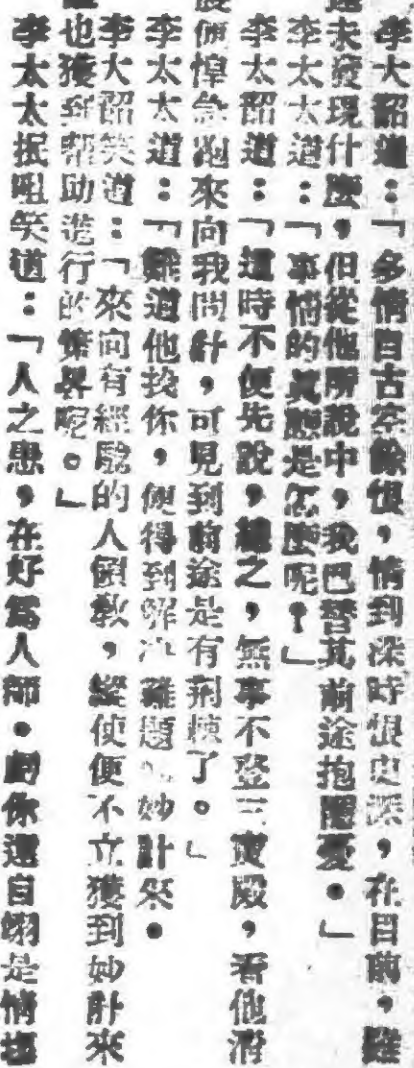 李大韶道：「多情自古空餘恨，情到深時恨更深，在目前，雖
還未發現什麼，但從他所說中，我巴替其前途抱隱憂。」
李太太道：「事情的真態是怎麼呢？」
李太韶道：「這時不便先說，總之，無事不登三寶殿，看他
急跑來向我問計，可見到前途是有荊棘了。」
李太太道：「難道他找你，便得到解決難題的妙計來。
李大韶笑道：「來向有經驗的人領教，縱使便不立獲到妙計來
也獲到幫助進行的策畧呢。」
李太太抿咀笑道：「人之患，在好為人師。你還自翊是情場